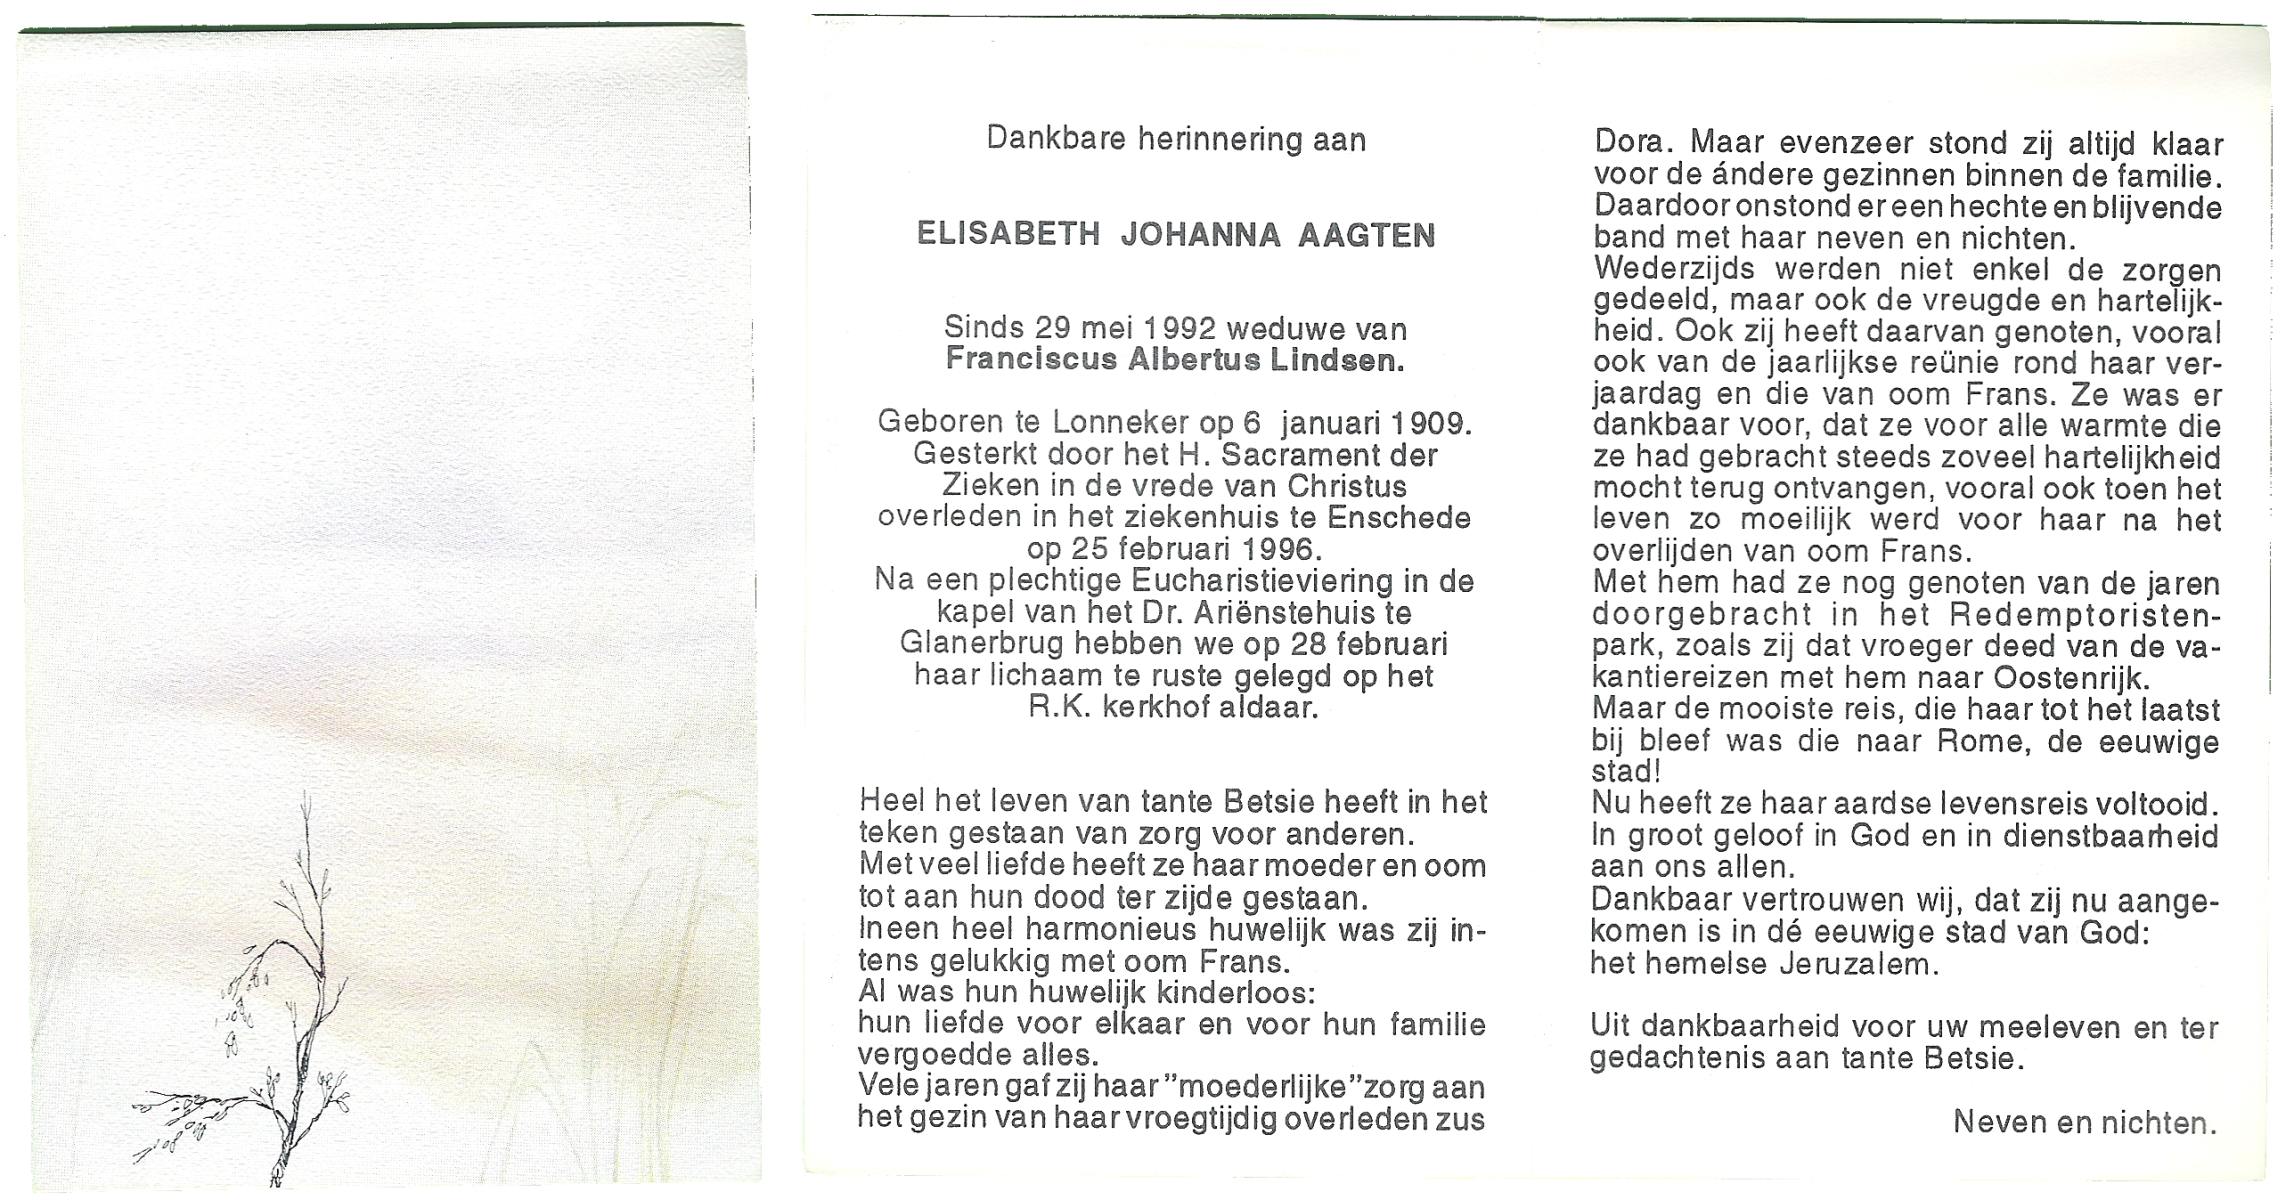 Dankbare herinnering aan
ELISABETH JOHANNA AAGTEN
Sinds 29 mei 1992 weduwe van
Franciscus Albertus Lindsen.
Geboren te Lonneker op 6 januari 1909.
Gesterkt door het H. Sacrament der
Zieken in de vrede van Christus
overleden in het ziekenhuis te Enschede
op 25 februari 1996.
Na een plechtige Eucharistieviering in de
kapel van het Dr. Ariënstehuis te
Glanerbrug hebben we op 28 februari
haar lichaam te ruste gelegd op het
R.K. kerkhof aldaar.
Heel het leven van tante Betsie heeft in het
teken gestaan van zorg voor anderen.
Met veel liefde heeft ze haar moeder en oom
tot aan hun dood ter zijde gestaan.
In een heel harmonieus huwelijk was zij in-
tens gelukkig met oom Frans.
Al was hun huwelijk kinderloos:
hun liefde voor elkaar en voor hun familie
vergoedde alles.
Vele jaren gaf zij haar "moederlijke" zorg aan
het gezin van haar vroegtijdig overleden zus
Dora. Maar evenzeer stond zij altijd klaar
voor de ándere gezinnen binnen de familie.
Daardoor onstond er een hechte en blijvende
band met haar neven en nichten.
Wederzijds werden niet enkel de zorgen
gedeeld, maar ook de vreugde en hartelijk-
heid. Ook zij heeft daarvan genoten, vooral
ook van de jaarlijkse reünie rond haar ver-
jaardag en die van oom Frans. Ze was er
dankbaar voor, dat ze voor alle warmte die
ze had gebracht steeds zoveel hartelijkheid
mocht terug ontvangen, vooral ook toen het
leven zo moeilijk werd voor haar na het
overlijden van oom Frans.
Met hem had ze nog genoten van de jaren
doorgebracht in het Redemptoristen-
park, zoals zij dat vroeger deed van de va-
kantiereizen met hem naar Oostenrijk.
Maar de mooiste reis, die haar tot het laatst
bij bleef was die naar Rome, de eeuwige
stad!
Nu heeft ze haar aardse levensreis voltooid.
In groot geloof in God en in dienstbaarheid
aan ons allen.
Dankbaar vertrouwen wij, dat zij nu aange-
komen is in dé eeuwige stad van God:
het hemelse Jeruzalem.
Uit dankbaarheid voor uw meeleven en ter
gedachtenis aan tante Betsie.
Neven en nichten.